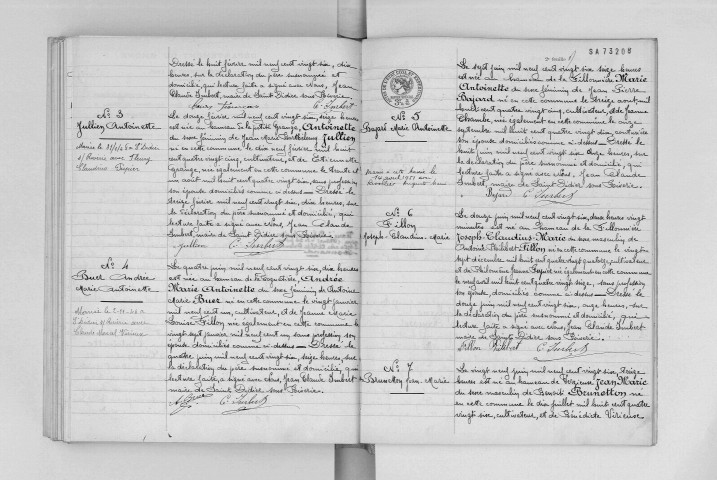 Dressé le huit février mil neuf cent vingt six, dix
heures, sur la déclaration du père susnommé et
domicilié, qui lecture faite a signé avec Nous, Jean
Claude Imbert, maire de Saint Didier sous Riverie.
C. Imbert
N° 3
Jullien Antoinette
Le douze février mil neuf cent vingt six, seize heures,
est née au hameau de la petite Grange, Antoinette
du sexe féminin de Jean Marie Barthélemy Jullien
né en cette commune le dix neuf février mil huit
cent quatre vingt cinq, cultivateur, et de
grange, née également en cette commune le trente et
un août mil huit cent quatre vingt dix, sans profession
son épouse domiciliés comme ci-dessus. Dressé le
treize février mil neuf cent vingt six, dix heures, sur
la déclaration du père susnommé et domicilié, qui
lecture faite a signé avec Nous, Jean Claude
Imbert, maire de Saint Didier sous Riverie.
Jullien C. Imbert
N° 4
Buer Andrée
Marie Antoinette
Le quatre juin mil neuf cent vingt six, dix heures
est née au hameau de la Coquetière, Andrée
Marie Antoinette du sexe féminin de Antoine
Marie Buer né en cette commune le vingt janvier
mil neuf cent un, cultivateur, et de Jeanne Marie
Louise Fillon née également en cette commune le
vingt sept janvier mil neuf cent un, sans profession son
épouse domiciliés comme ci-dessus. Dressé le
quatre juin mil neuf cent vingt six, seize heures, sur
la déclaration du père susnommé et domicilié, qui
lecture faite, a signé avec Nous, Jean Claude Imbert
maire de Saint Didier sous Riverie.
C. Imbert
SA 73208
N° 5
Marie Antoinette
Le sept juin mil neuf cent vingt six, seize heures
est née au hameau de la Fillonnière Marie
Antoinette du sexe féminin de Jean Pierre
né en cette commune le treize août mil
huit cent quatre vingt six, cultivateur, et de Jeanne
née également en cette commune le onze
septembre mil huit cent quatre vingt dix,
son épouse domiciliés comme ci-dessus. Dressé le
huit juin mil neuf cent vingt six onze heures, sur
la déclaration du père susnommé et domicilié, qui
lecture faite a signé avec Nous, Jean Claude
Imbert, maire de Saint Didier sous Riverie.
C. Imbert
N° 6
Fillon
Joseph-Claudius-Marie
Le douze juin mil neuf cent vingt six, deux heures vingt
minutes est né au hameau de la Fillonnière
Joseph-Claudius-Marie du sexe masculin de
Fillon né en cette commune le vingt
sept décembre mil huit cent quatre vingt quatorze, cultivateur
et de née également en cette commune
le neuf avril mil huit cent quatre vingt seize, sans profession
son épouse, domiciliés comme ci-dessus. Dressé le
douze juin mil neuf cent vingt six, onze heures, sur
la déclaration du père susnommé et domicilié, qui
lecture faite a signé avec Nous, Jean Claude Imbert
maire de Saint Didier sous Riverie.
Fillon C. Imbert
N° 7
Jean-Marie
Le vingt neuf juin mil neuf cent vingt six, treize
heures est né au hameau de Jean Marie
du sexe masculin de Benoit né
en cette commune le dix juillet mil huit cent quatre
vingt six, cultivateur, et de Bénédicte